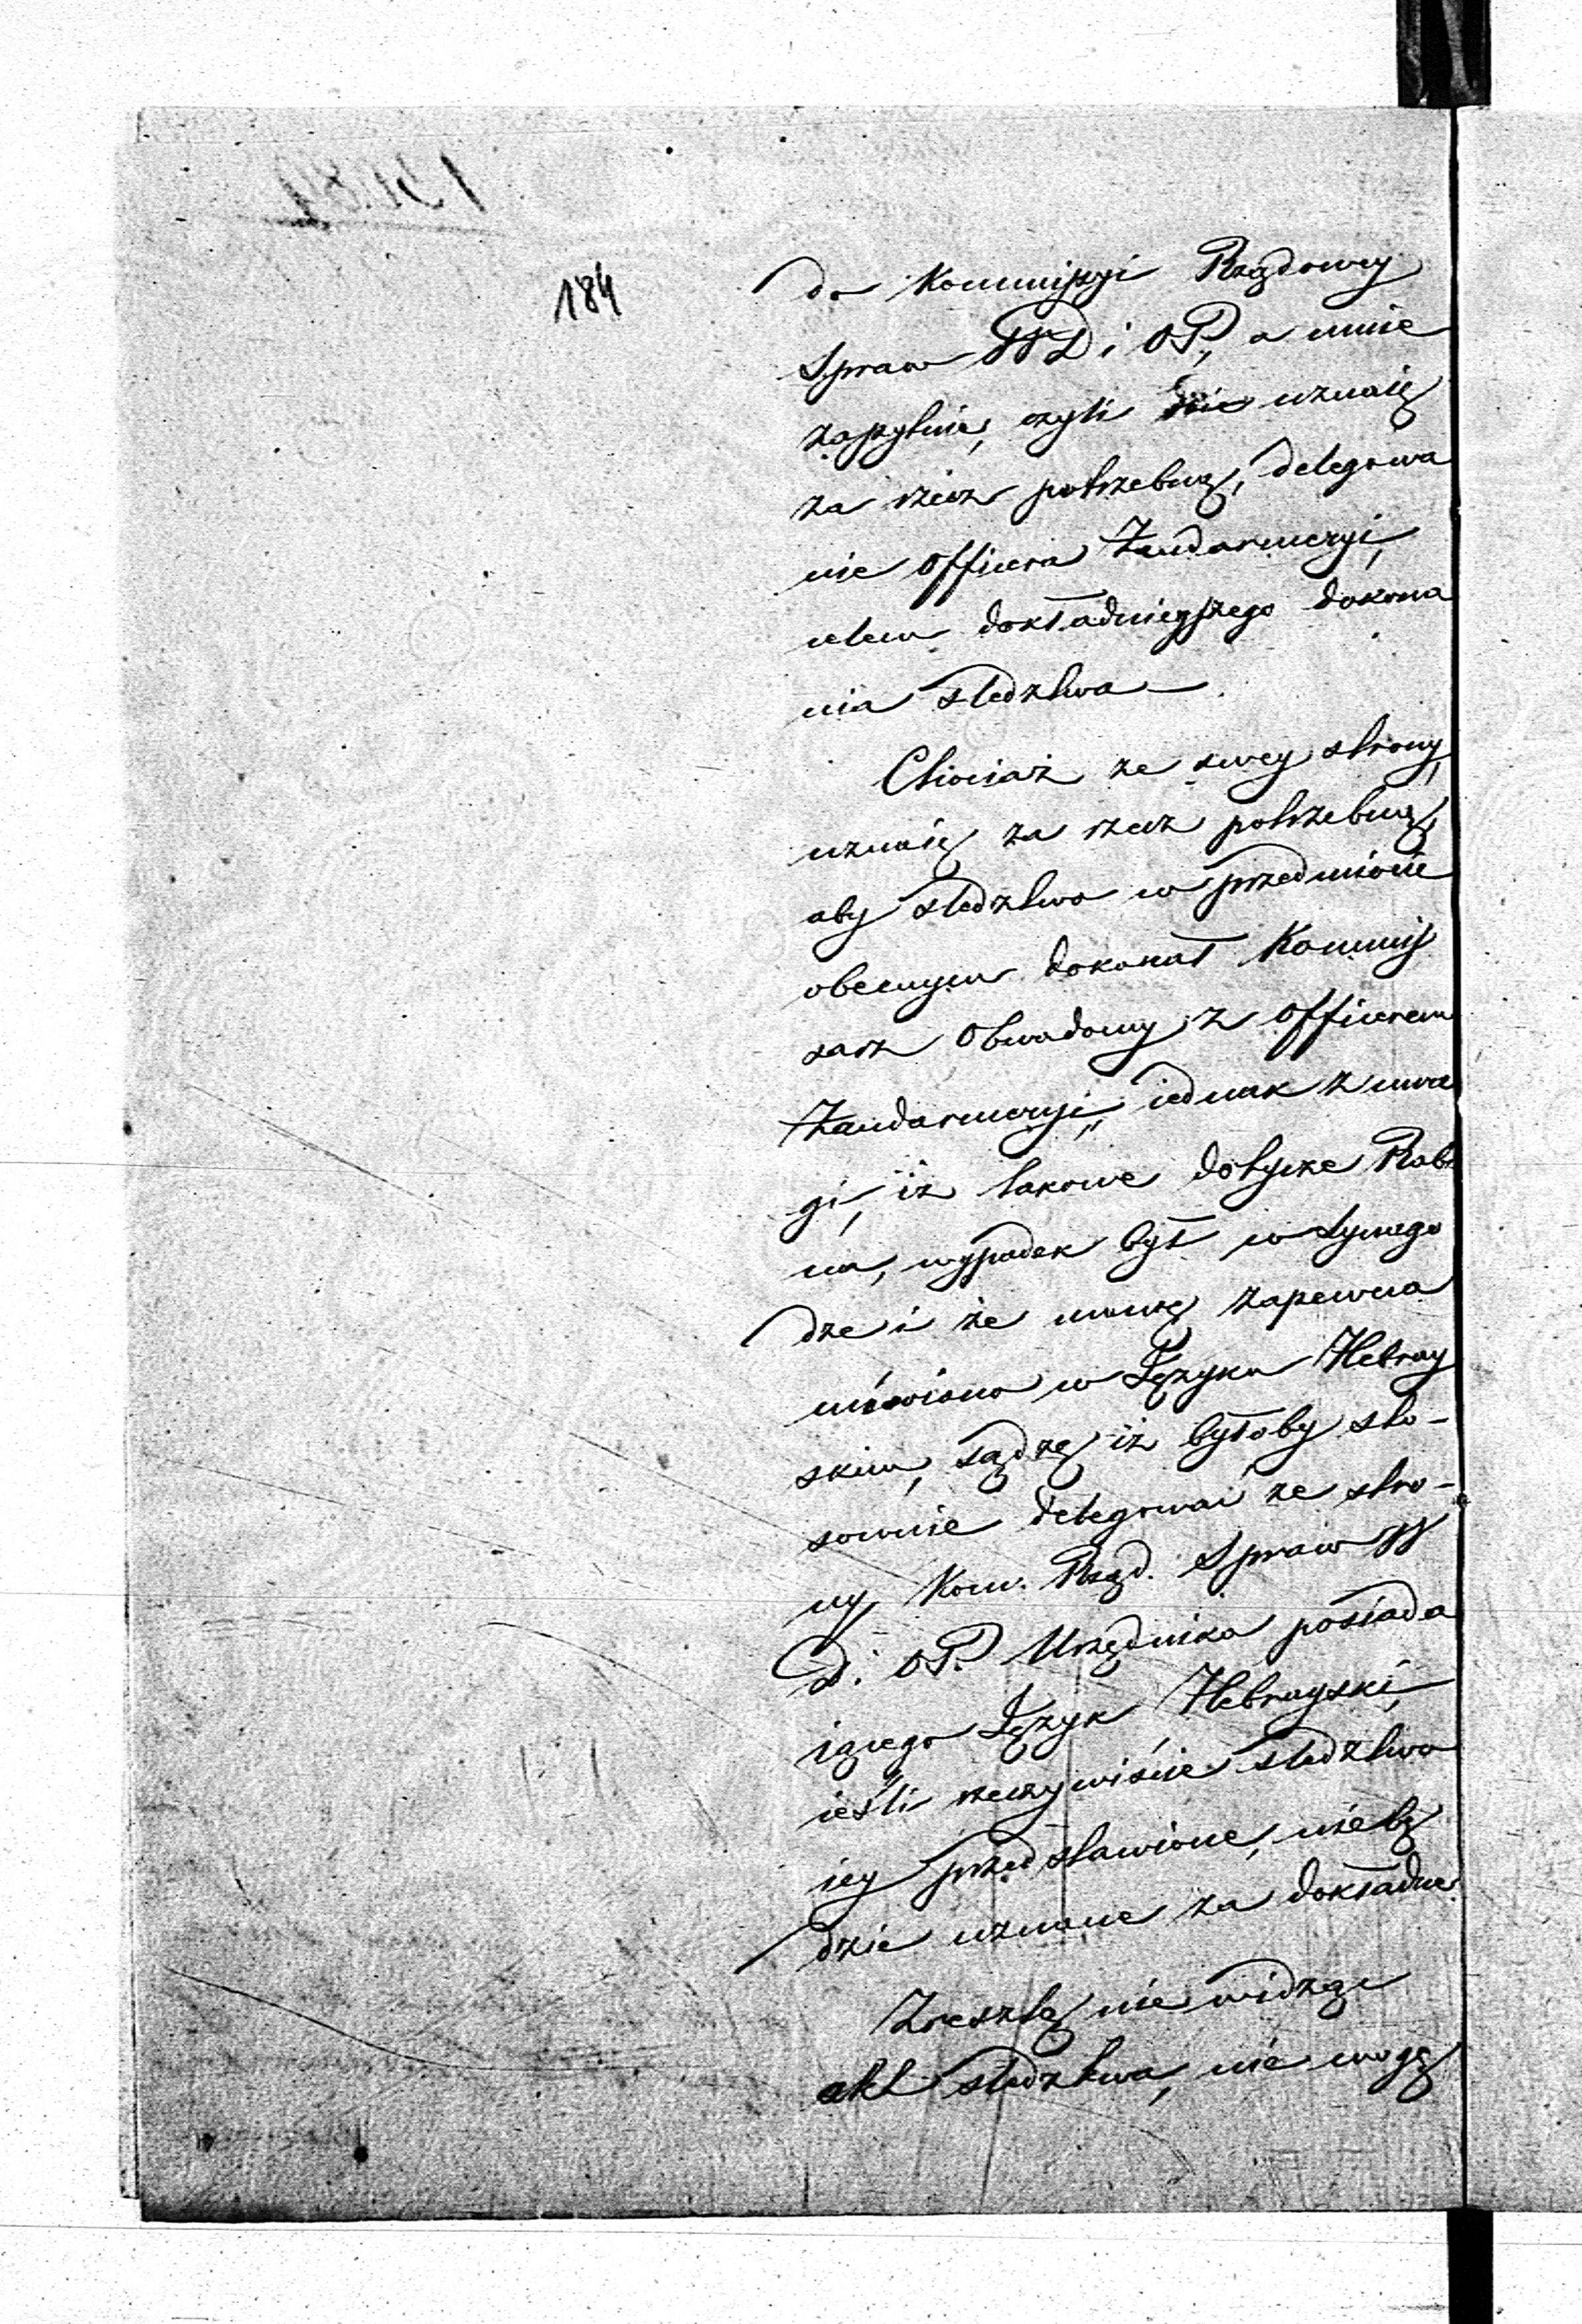 184
do Kommissyi Rządowey
Spraw W D i O P, a mnie
zapytuie, czyli nie uznaię
za rzecz potrzebną, delegowa
nie Officera Żandarmeryi,
celem dokładnieyszego dokona
nia śledztwa —
Chociaż ze swey strony,
uznaię za rzecz potrzebną,
aby śledztwo w przedmiocie
obecnym dokonał Kommis
sarz Obwodowy z Officerem
Żandarmeryi, iednak z uwa
gi, iż takowe dotycze Rabi
na, wypadek był w Synago
dze i że mowę zapewna
mówiono w Języku Hebray
skim, sądzę iż byłoby sto-
sownie delegować ze stro-
ny Kom. Rząd. Spraw W
D. O P. Urzędnika posiada
iącego Język Hebrayski,
ieśli rzeczywiście śledztwo
iey przedstawione, nie bę
dzie uznane za dokładne.
Zresztą nie widząc
akt śledztwa, nie mogę